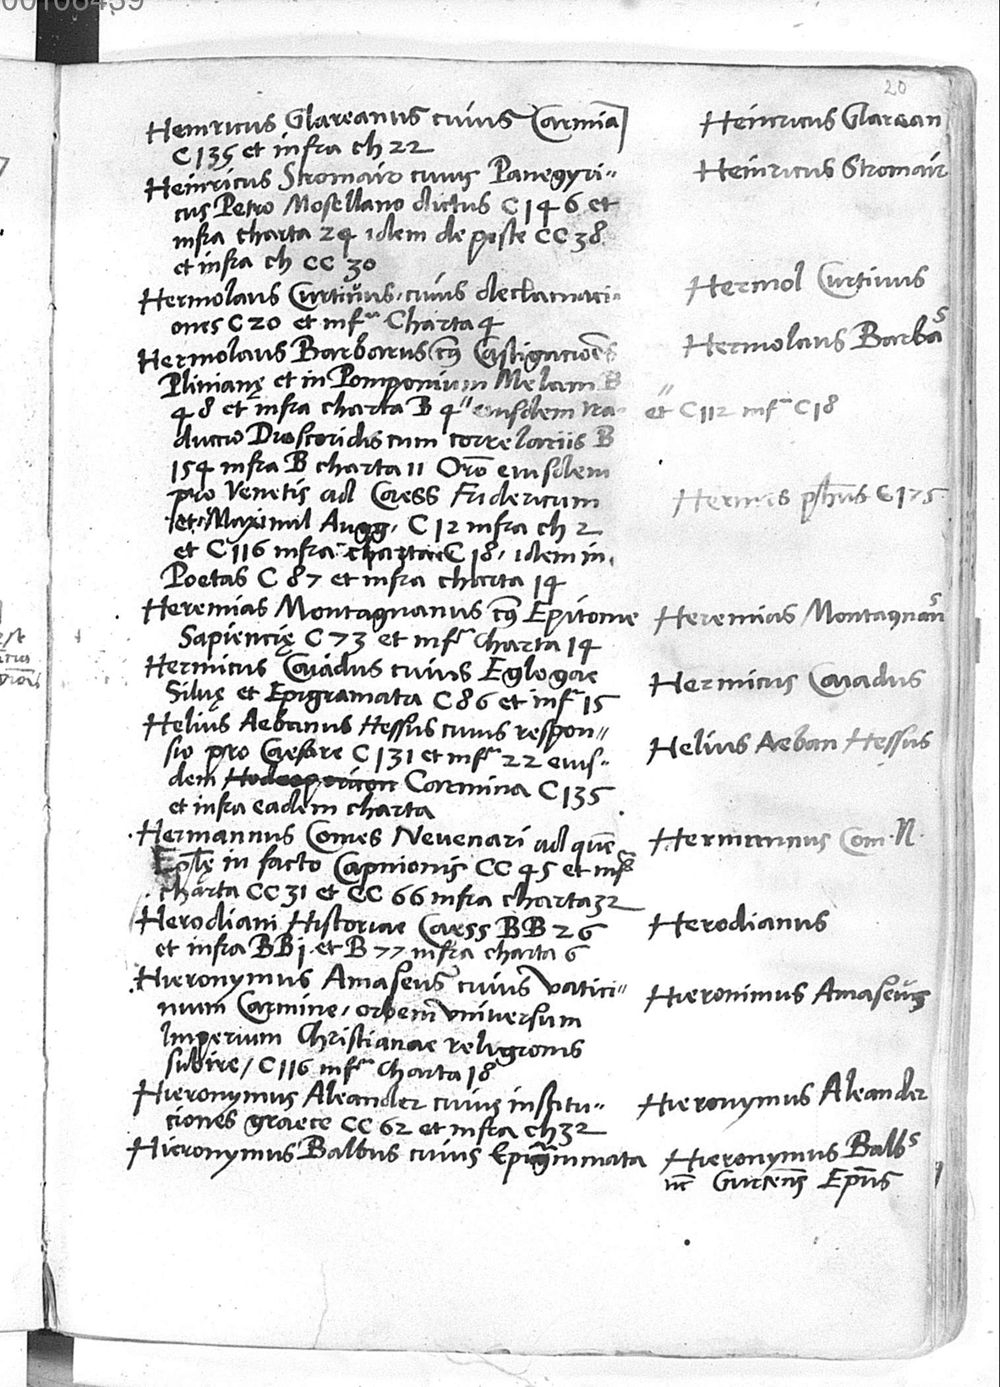 20
Heinricus Glareanus cuius Carmia
C 135 et infra ch 22
Heinricus Glarean
Heinricus Stromair cuius Panegyri„
cus Petro Mosellano dictus C 146 et
infra charta 24 idem de peste CC 38
et infra ch CC 30
Heinricus Stromair
Hermolaus Curtiuus cuius declamaci„
ones C 20 et inf Charta 4
Hermol Curtiuus
Hermolaus Barbarus cuius Castigacioes
Plinianę et in Pomponium Melam B
48 et infra charta B 4 eiusdem tra„
ductio Dioscoridis cum correlariis B
154 infra B charta 11 Oro eiusdem
pro Venetis ad Caess Fridericum
et Maximil Augg. C 12 infra ch 2
et C 116 infra charta C 18, idem in
Poetas C 87 et infra charta 14
Hermolaus Barba
et C 112 inf C 18
Hermes C 175
Heremias Montagnanus cuius Epitome
Sapiencię C 73 et inf Charta 14
Heremias Montagnan
Hermicus Caiadus cuius Eglogae
Siluę et Epigramata C 86 et inf 15
Hermicus Caiadus
Helius Aebanus Hessus cuius respon„
sio pro Caesare C 131 et inf 22 eius„
dem Hodoeporicon Carmina C 135
et infra eadem charta
Helius Aeban Hessus
Hermannus Comes Neuenari ad que
Eplę in facto Capnionis CC 45 et inf
charta CC 31 et CC 66 infra charta 32
Hermannus Com. N.
Herodiani Historiae Caess BB 26
et infra BB j. et B 77 infra charta 6
Herodianus
Hieronymus Amaseus cuius vatici„
nium Carmine, orbem vniversum
Imperium Christianae religionis
subire / C 116 inf Charta 18
Hieronimus Amaseus
Hieronymus Aleander cuius institu„
ciones graece CC 62 et infra ch 32
Hieronymus Aleander
Hieronymus Balbus cuius Epigrammata
Hieronymus Balbs
Gurcens Epus